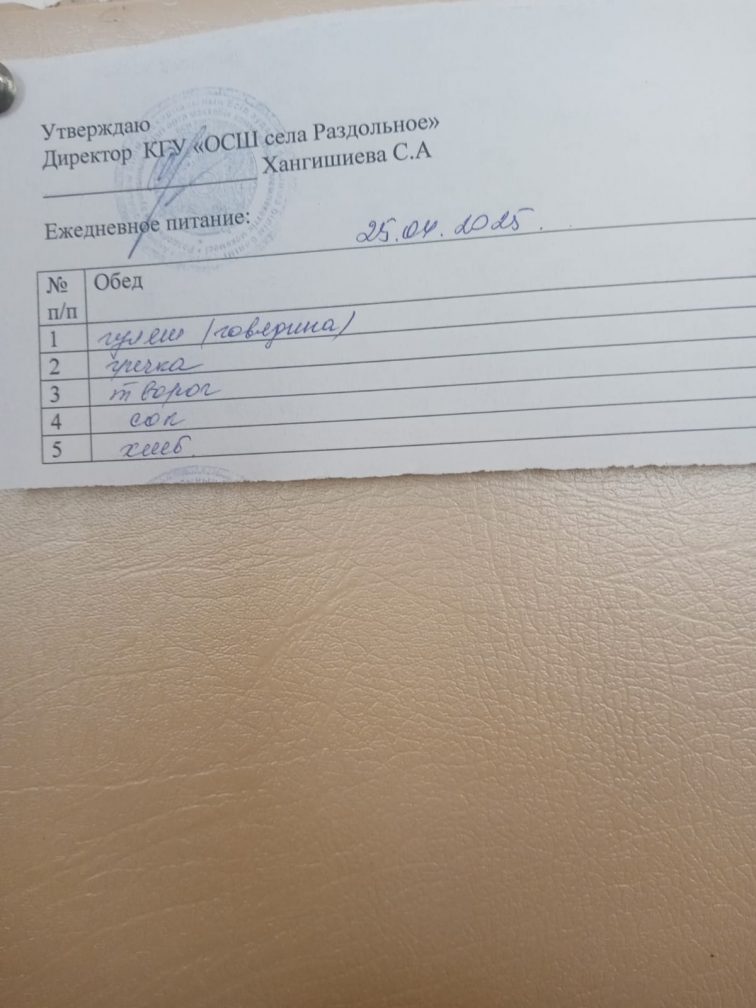 Утверждаю
Директор КГУ «ОСШ села Раздольное»
Хангишиева С.А
Ежедневное питание: 25.04.2025.
№ п/п Обед
1 гуляш (говядина)
2 гречка
3 творог
4 сок
5 хлеб